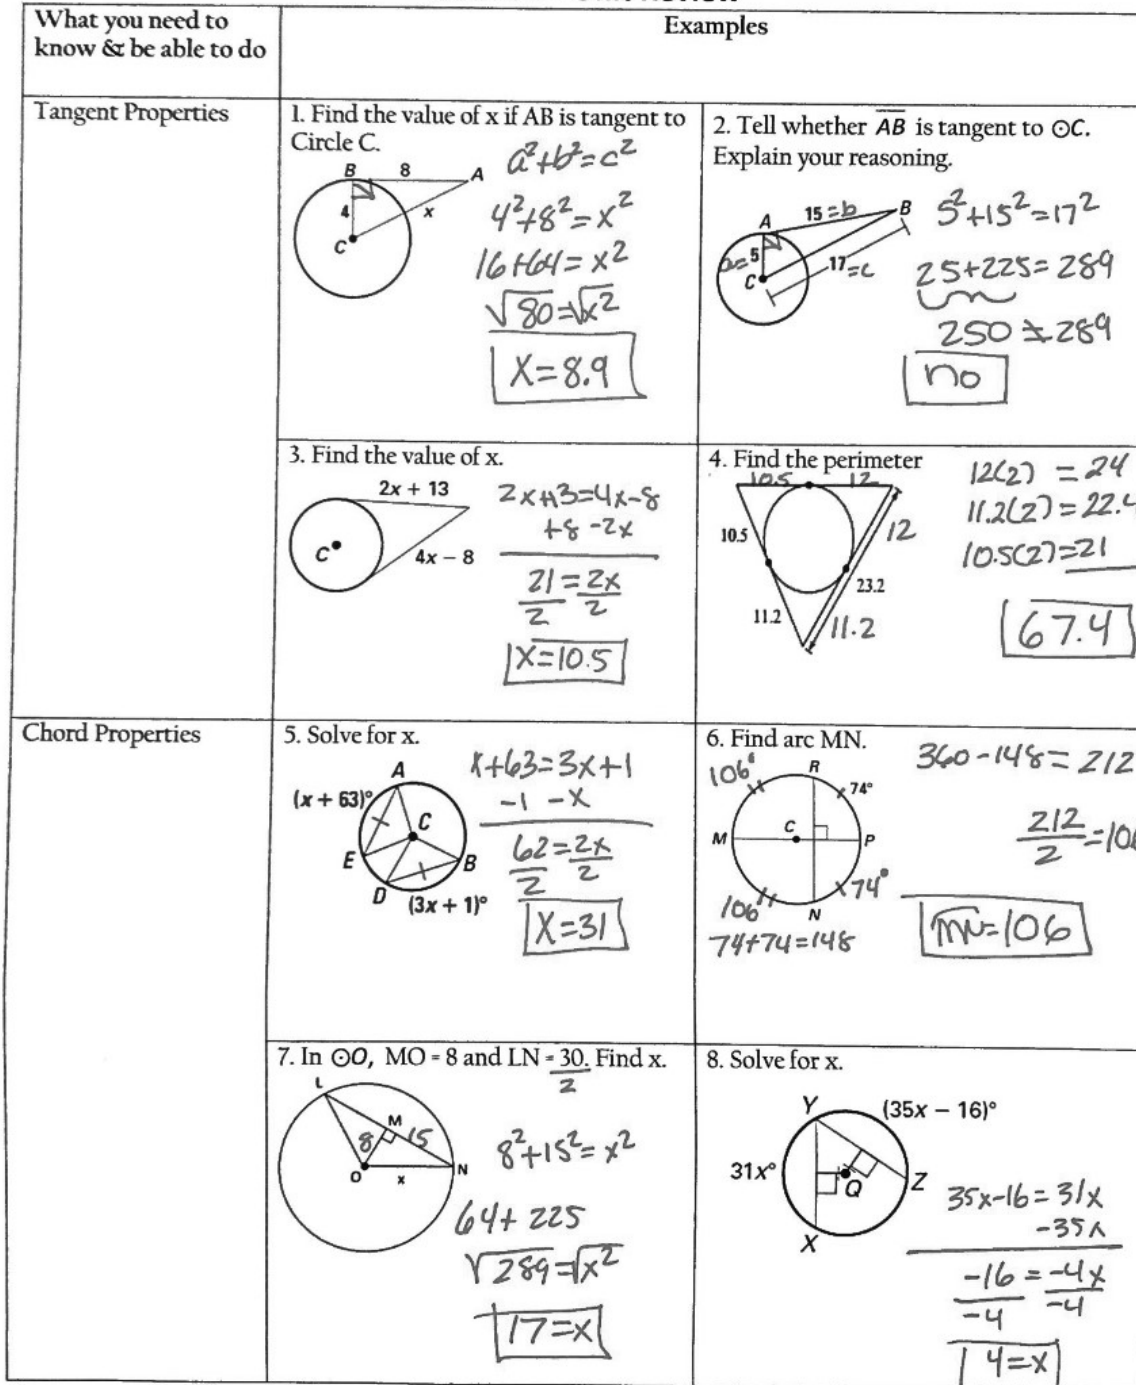 What you need to
know & be able to do
Examples
Tangent Properties
1. Find the value of x if AB is tangent to
Circle C.
B 8 A
4
x
C
a²+b²=c²
4²+8²=x²
16+64=x²
√80=√x²
X=8.9
2. Tell whether AB is tangent to ⊙C.
Explain your reasoning.
A 15=b B
a=5
17=c
C
5²+15²=17²
25+225=289
250≠289
no
3. Find the value of x.
2x + 13
C
4x − 8
2x+13=4x-8
+8 -2x
21=2x
2 2
X=10.5
4. Find the perimeter
10.5 12
10.5
12
23.2
11.2
11.2
12(2) = 24
11.2(2)=22.4
10.5(2)=21
67.4
Chord Properties
5. Solve for x.
A
(x + 63)°
C
E B
D
(3x + 1)°
x+63=3x+1
-1 -x
62=2x
2 2
X=31
6. Find arc MN.
106°
R
74°
M C P
74°
106°
N
74+74=148
360-148=212
212
2
=106
MN=106
7. In ⊙O, MO = 8 and LN = 30. Find x.
2
L
M
8 15
O x N
8²+15²=x²
64+225
√289=√x²
17=x
8. Solve for x.
Y (35x − 16)°
31x°
Q Z
X
35x-16=31x
-35x
-16=-4x
-4 -4
4=x